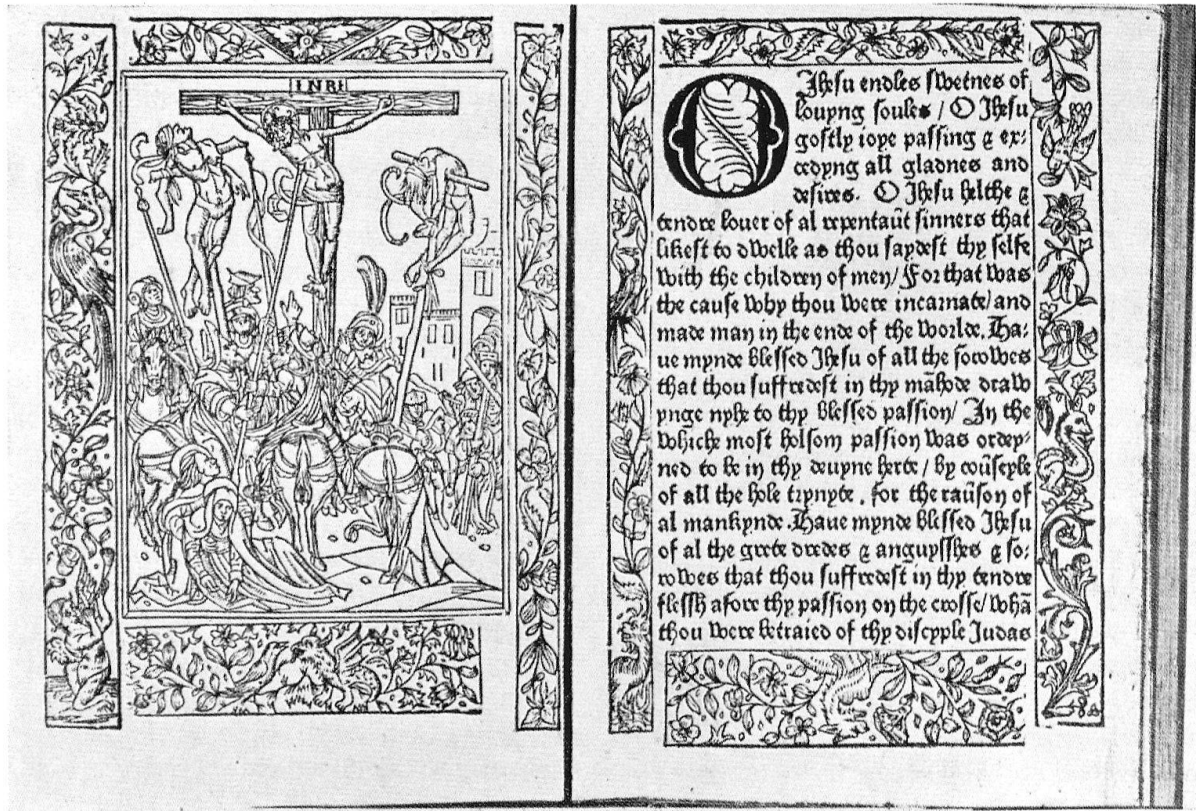 INRI
O Jhesu endles swetnes of
louyng soules / O Jhesu
gostly ioye passing & ex⸗
cedyng all gladnes and
desires. O Jhesu helthe &
tendre louer of al repentaūt sinners that
likest to dwelle as thou saydest thy selfe
with the children of men / For that was
the cause why thou were incarnate / and
made man in the ende of the worlde. Ha⸗
ue mynde blessed Jhesu of all the sorowes
that thou suffredest in thy māhode draw
ynge nyhe to thy blessed passion / In the
whiche most holsom passion was ordey⸗
ned to be in thy deuyne herte / by coūseyle
of all the hole trynyte. for the raūson of
al mankynde. Haue mynde blessed Jhesu
of al the grete dredes & anguysshes & so⸗
rowes that thou suffredest in thy tendre
flessh afore thy passion on the crosse / whā
thou were betraied of thy discyple Judas